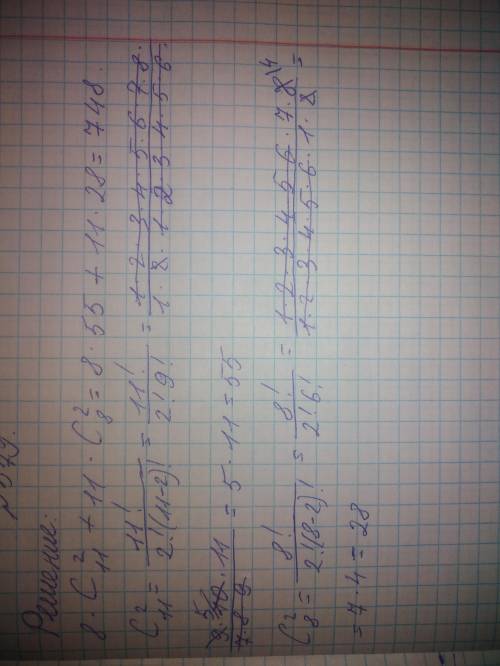 № 579.
Решение:
8 · C²₁₁ + 11 · C²₈ = 8 · 55 + 11 · 28 = 748.
C²₁₁ = 11! / 2!(11-2)! = 11! / 2! 9! = 1·2·3·4·5·6·7·8· / 1·2·1·2·3·4·5·6·
9·10⁵·11 / 7·8·9 = 5 · 11 = 55
C²₈ = 8! / 2!(8-2)! = 8! / 2! 6! = 1·2·3·4·5·6·7·8\4 / 1·2·3·4·5·6·1·2 =
= 7 · 4 = 28